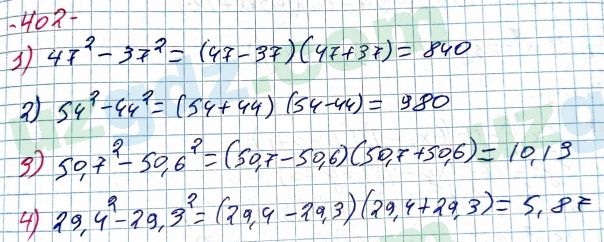 -402-
1) 47² - 37² = (47-37)(47+37) = 840
2) 54² - 44² = (54+44) (54-44) = 980
3) 50,7² - 50,6² = (50,7-50,6)(50,7+50,6) = 10,13
4) 29,4² - 29,3² = (29,4-29,3)(29,4+29,3) = 5,87